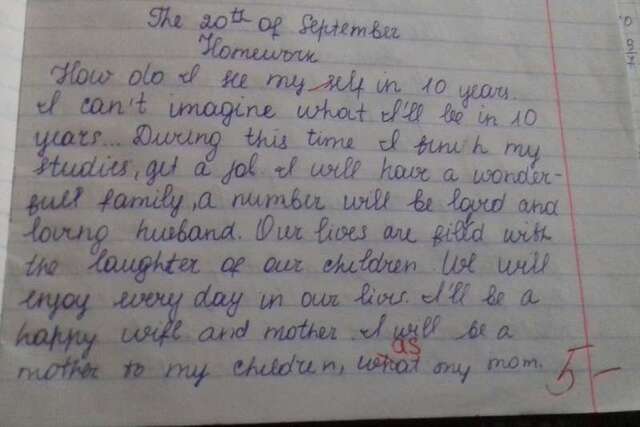 The 20th of September
Homework
How do I see my self in 10 years.
I can't imagine what I'll be in 10
years... During this time I finish my
studies, get a job. I will have a wonder-
full family, a number will be loved and
loving husband. Our lives are filld with
the laughter of our children. We will
enjoy every day in our lives. I'll be a
happy wife and mother. I will be a
as
mother to my children, what my mom.
5-